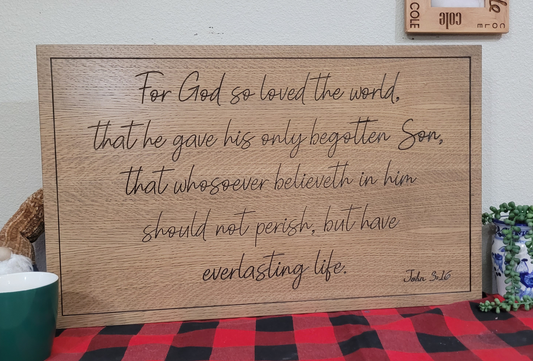 cole
COLE
cole
For God so loved the world,
that he gave his only begotten Son,
that whosoever believeth in him
should not perish, but have
everlasting life.
John 3:16